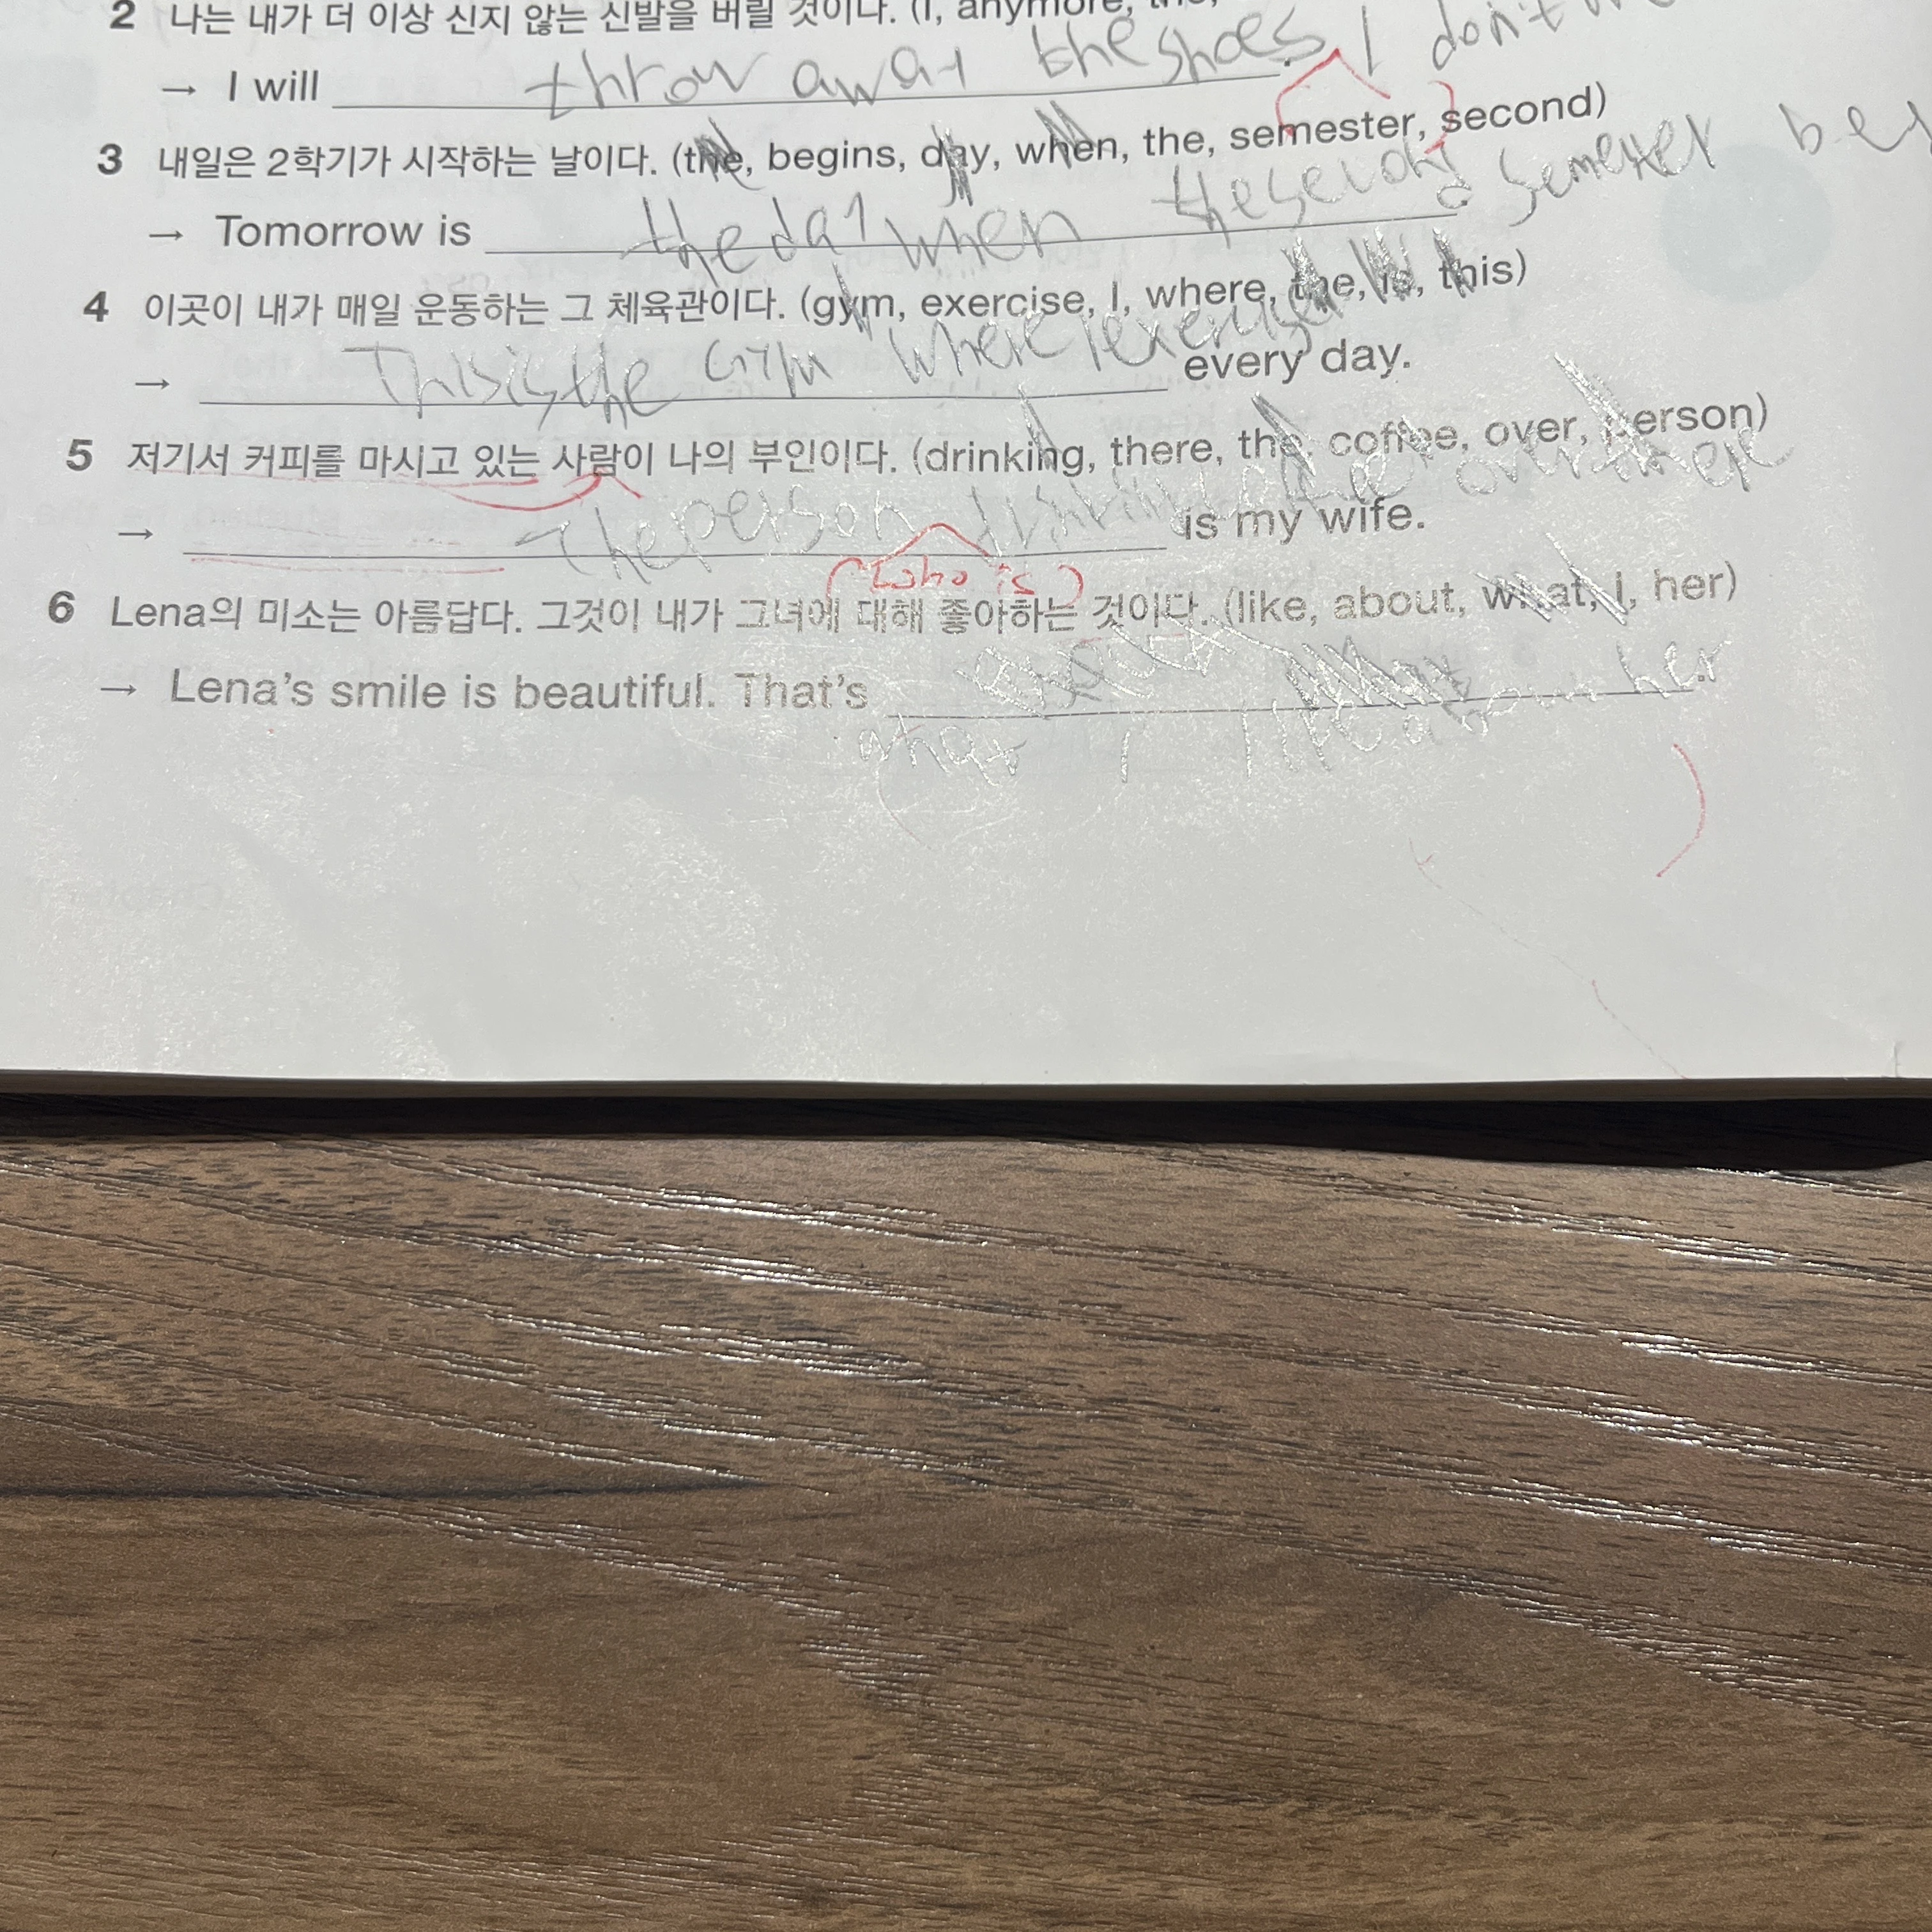 2 나는 내가 더 이상 신지 않는 신발을 버릴 것이다. (I, anymore,
→ I will throw away the shoes I don't
3 내일은 2학기가 시작하는 날이다. (the, begins, day, when, the, semester, second)
→ Tomorrow is the day when the second semester
4 이곳이 내가 매일 운동하는 그 체육관이다. (gym, exercise, I, where, the, is, this)
→ This is the Gym where I exercise every day.
5 저기서 커피를 마시고 있는 사람이 나의 부인이다. (drinking, there, the, coffee, over, person)
→ The person drinking over there is my wife.
(who is)
6 Lena의 미소는 아름답다. 그것이 내가 그녀에 대해 좋아하는 것이다. (like, about, what, I, her)
→ Lena's smile is beautiful. That's her.
what I like about